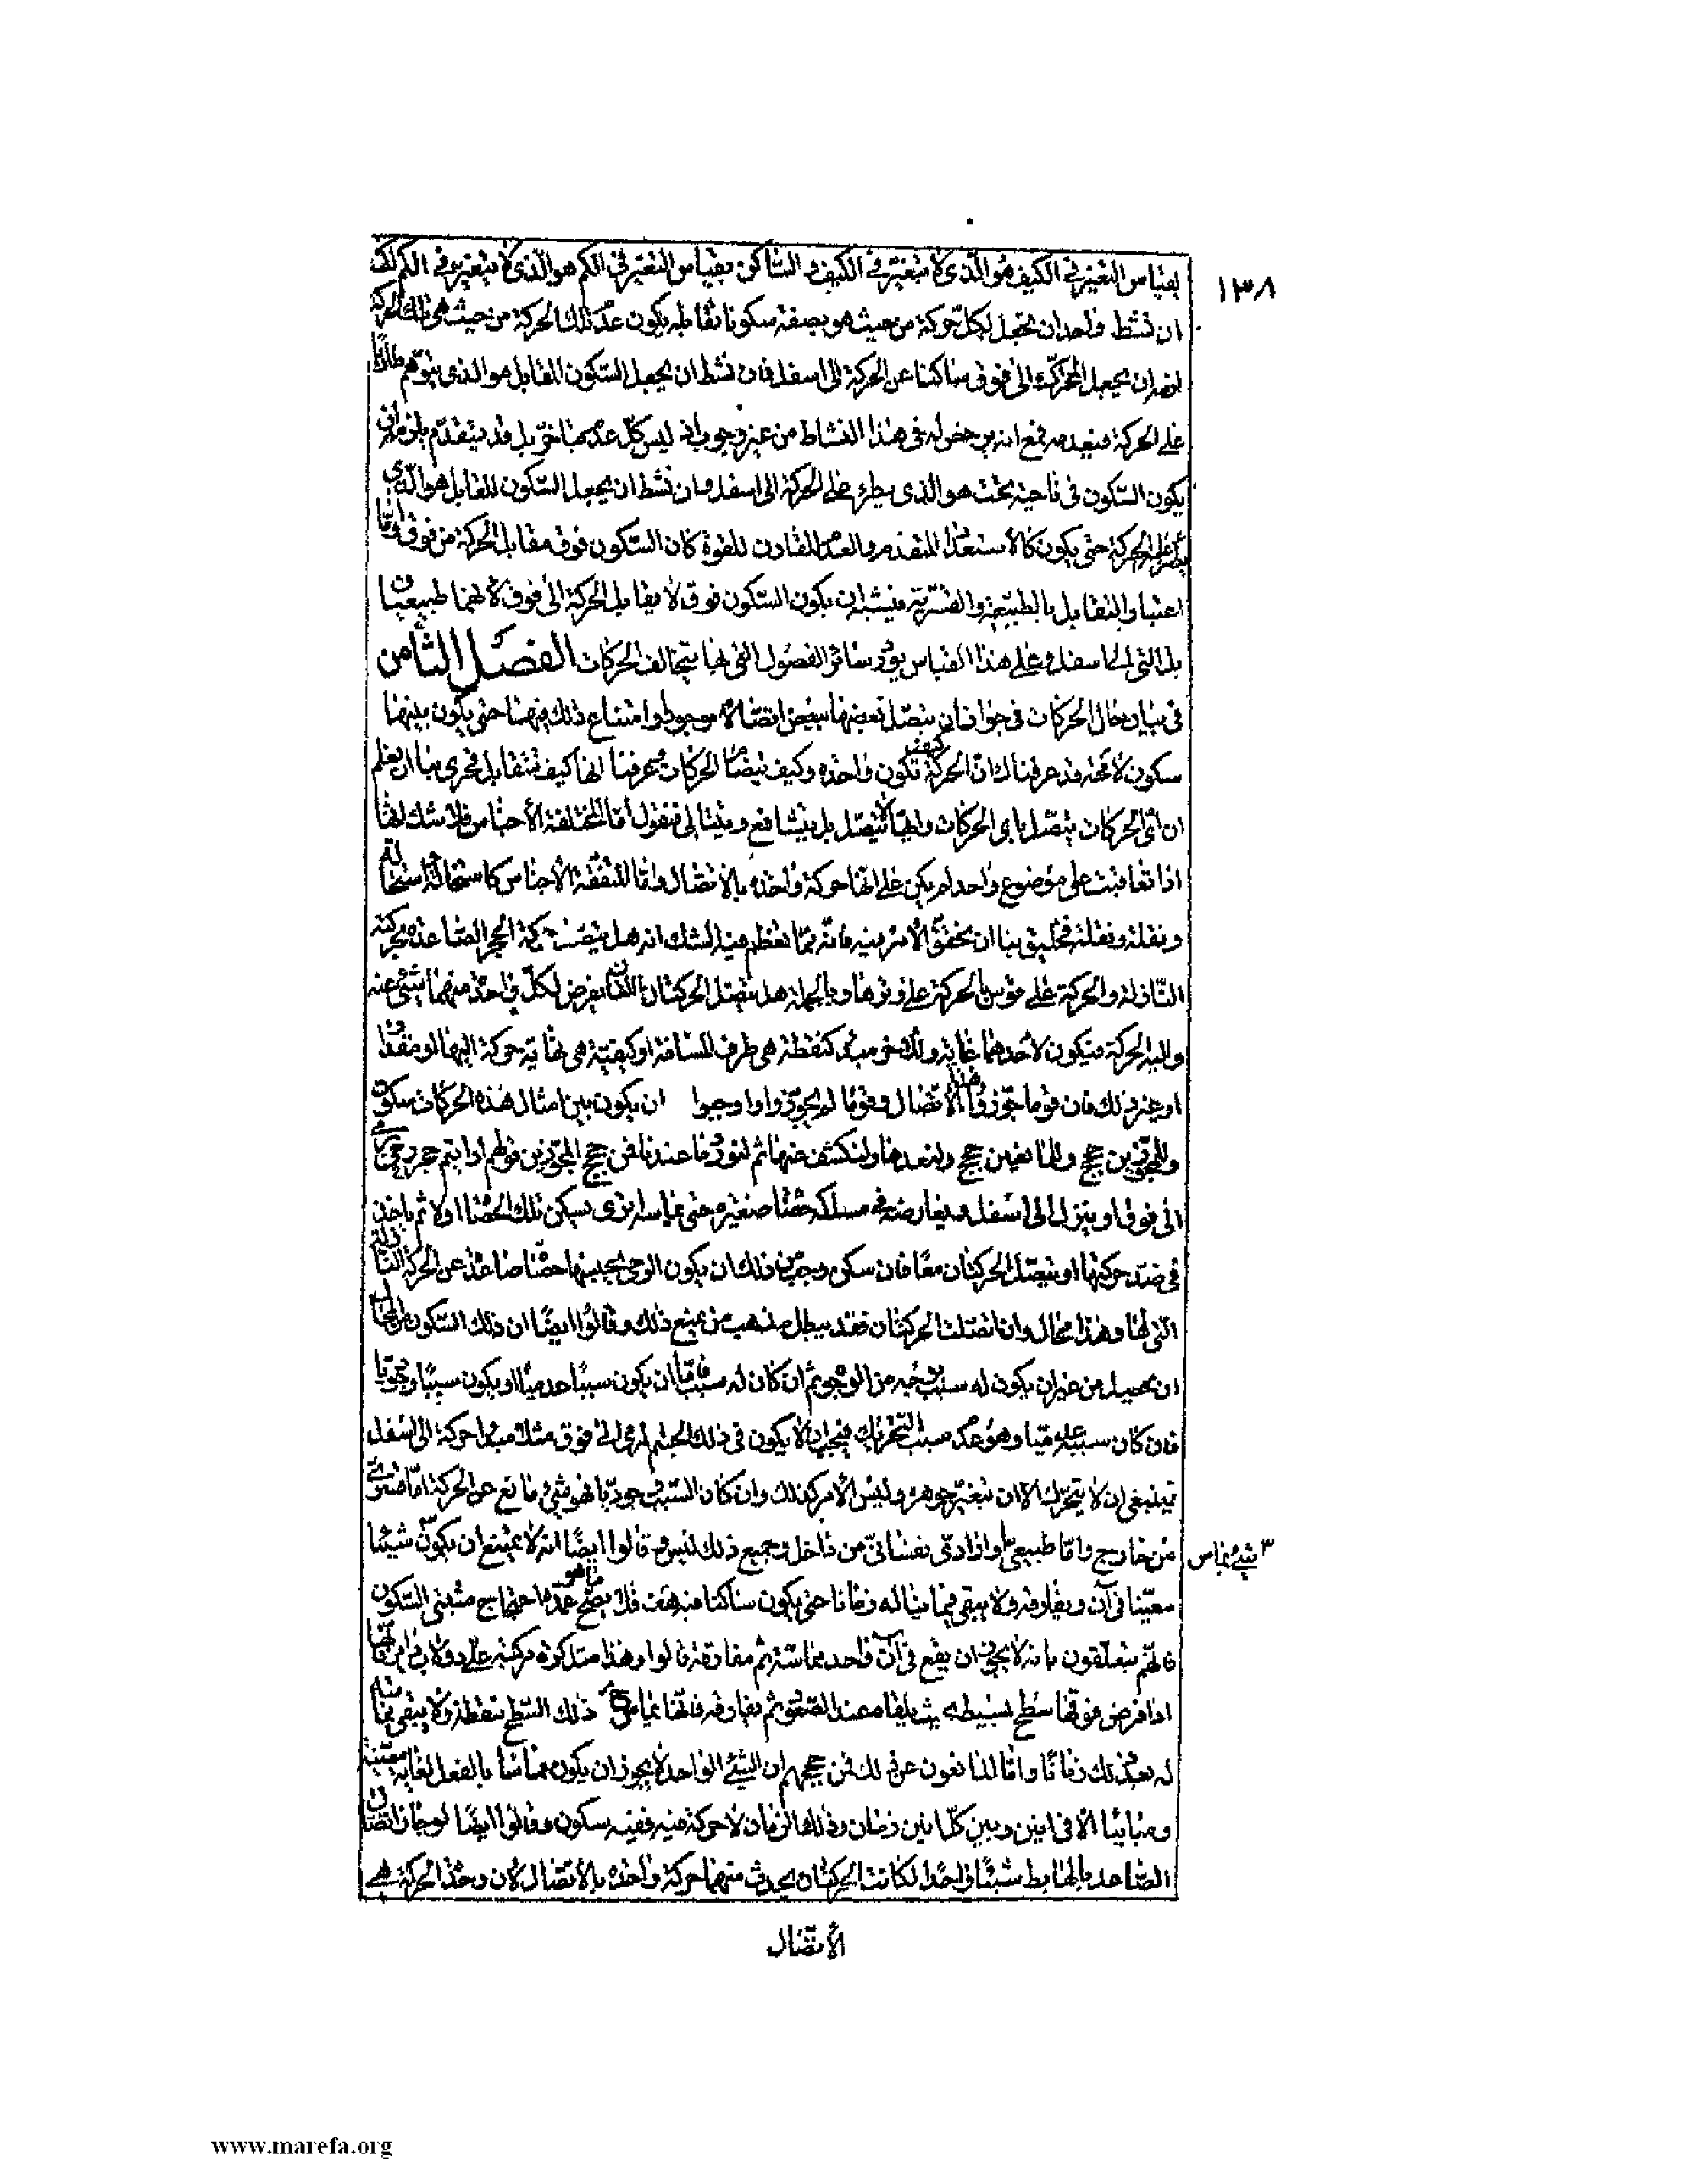 ١٣٨
بقياس التغير في الكيف هو الذي لا يتغير في الكيف و الساكن بقياس التغير في الكم هو الذي لا يتغير في الكم لكن
ان نشط واحد ان يجعل لكل حركة من حيث هو بصفة سكونا تقابله يكون عدم تلك الحركة من حيث هي تلك الحركة
ان يجعل المتحرك الى فوق ساكنا عن الحركة الى اسفل فان نشط ان يجعل السكون المقابل هو الذي يتوهم طاريا
على الحركة فيعدمه فمع انه من غير وجوب اذ ليس كل عدم متاخر بل قد يتقدم يلزمه ان
يكون السكون في ناحية تحت هو الذي يطرء على الحركة الى اسفل وان نشط ان يجعل السكون المقابل هو الذي
يطرء عليه الحركة حتى يكون كالاستعداد المتقدم والعدم المقارن للقوة كان السكون فوق مقابل الحركة من فوق واما
اعتبار التقابل بالطبيعية والقسرية فيشبه ان يكون السكون فوق لا يقابل الحركة الى فوق لانهما طبيعيان
بل التي الى اسفل وعلى هذا القياس سائر الفصول التي لها يتخالف الحركات الفصل الثامن
في بيان حال الحركات في جواز ان يتصل بعضها ببعض اتصالا موجودا وامتناع ذلك فيهما حتى يكون بينهما
سكون لا محة قد عرفناك ان الحركة كيف تكون واحدة وكيف تضاد الحركات عرفنا انها كيف تتقابل فحرى بنا ان نعلم
ان اي الحركات يتصل باي الحركات وايها لا يتصل بل يتشافع ويتتالى فنقول اما المختلفة الاجناس فلا شك انها
اذا تعاقبت على موضوع واحد لم يكن على انها حركة واحدة بالاتصال واما المتفقة الاجناس كاستحالة واستحالة
ونقلة ونقلة فخليق بنا ان نحقق الامر فيه فانه مما تعظم فيه الشك انه هل يتصل حركة الحجر الصاعدة بحركته
النازلة والحركة على قوس بالحركة على وترها وبالجملة هل يتصل الحركتان اللتان يفرض لكل واحدة منهما شيء عنه
واليه الحركة فيكون لاحدهما غاية وللاخرى مبدء كنقطة هي طرف المسافة او كيفية هي نهاية حركة اليها او مقدار
او غير ذلك فان قوما جوزوا هذا الاتصال وقوما لم يجوزوا واوجبوا ان يكون بين امثال هذه الحركات سكون
وللمجوزين حجج وللمانعين حجج ولنعدها ولنكشف عنها ثم لنورد ما عندنا فمن حجج المجوزين قولهم ارايتم حجر رحى
الى فوق او ينزل الى اسفل ويعارضه في مسلكه حصاة صغيرة حتى يماسه اترى يسكن تلك الحصاة اولا ثم ياخذ
في ضد حركتها او يتصل الحركتان معا فان سكن وجب من ذلك ان يكون الرحى تحبسها حصاة صاعدة عن الحركة النازلة
التي لها وهذا محال وان اتصلت الحركتان فقد بطل مذهب من يمنع ذلك وقالوا ايضا ان ذلك السكون من المحال
ان يحصل من غير ان يكون له سبب من الوجوه ثم ان كان له سبب فاما ان يكون سببا عدميا او يكون سببا وجوديا
فان كان سببه عدميا وهو عدم سبب التحريك فيجب ان لا يكون في ذلك الجسم المرمى الى فوق مثلا مبدا حركة الى اسفل
فينبغي ان لا يتحرك الا ان يتغير جوهره وليس الامر كذلك وان كان السبب وجوديا فهو شيء مانع عن الحركة اما قسري
من خارج واما طبيعي او ارادي نفساني من داخل وجميع ذلك ليس وقالوا ايضا انه لا يمتنع ان يكون شيئا
٣ شيء يماس
معينا في آن ويفارقه ولا يبقى مماسا له زمانا حتى يكون ساكنا فيه فلا يصح عدم ما هو احتجاج مثبتي السكون
فانهم يتعلقون بانه لا يجوز ان يقع في آن واحد مماسة ثم مفارقة قالوا وهذا مثل كرة مركبة على دولاب دائر فانها
اذا فرض فوقها سطح بسيط بحيث يلقاه عند الصعود ثم يفارقه فانها يماس ذلك السطح بنقطة ولا يبقى مماسة
له بعد ذلك زمانا واما المانعون عن ذلك فمن حججهم ان الشيء الواحد لا يجوز ان يكون مماسا بالفعل لغاية معينة
ومباينا الا في انين وبين كل انين زمان وذلك الزمان لا حركة فيه ففيه سكون وقالوا ايضا لو جاز اتصال
الصاعد بالهابط شيئا واحدا لكانت الحركتان يحدث منهما حركة واحدة بالاتصال لان وحدة الحركة هي
الاتصال
www.marefa.org